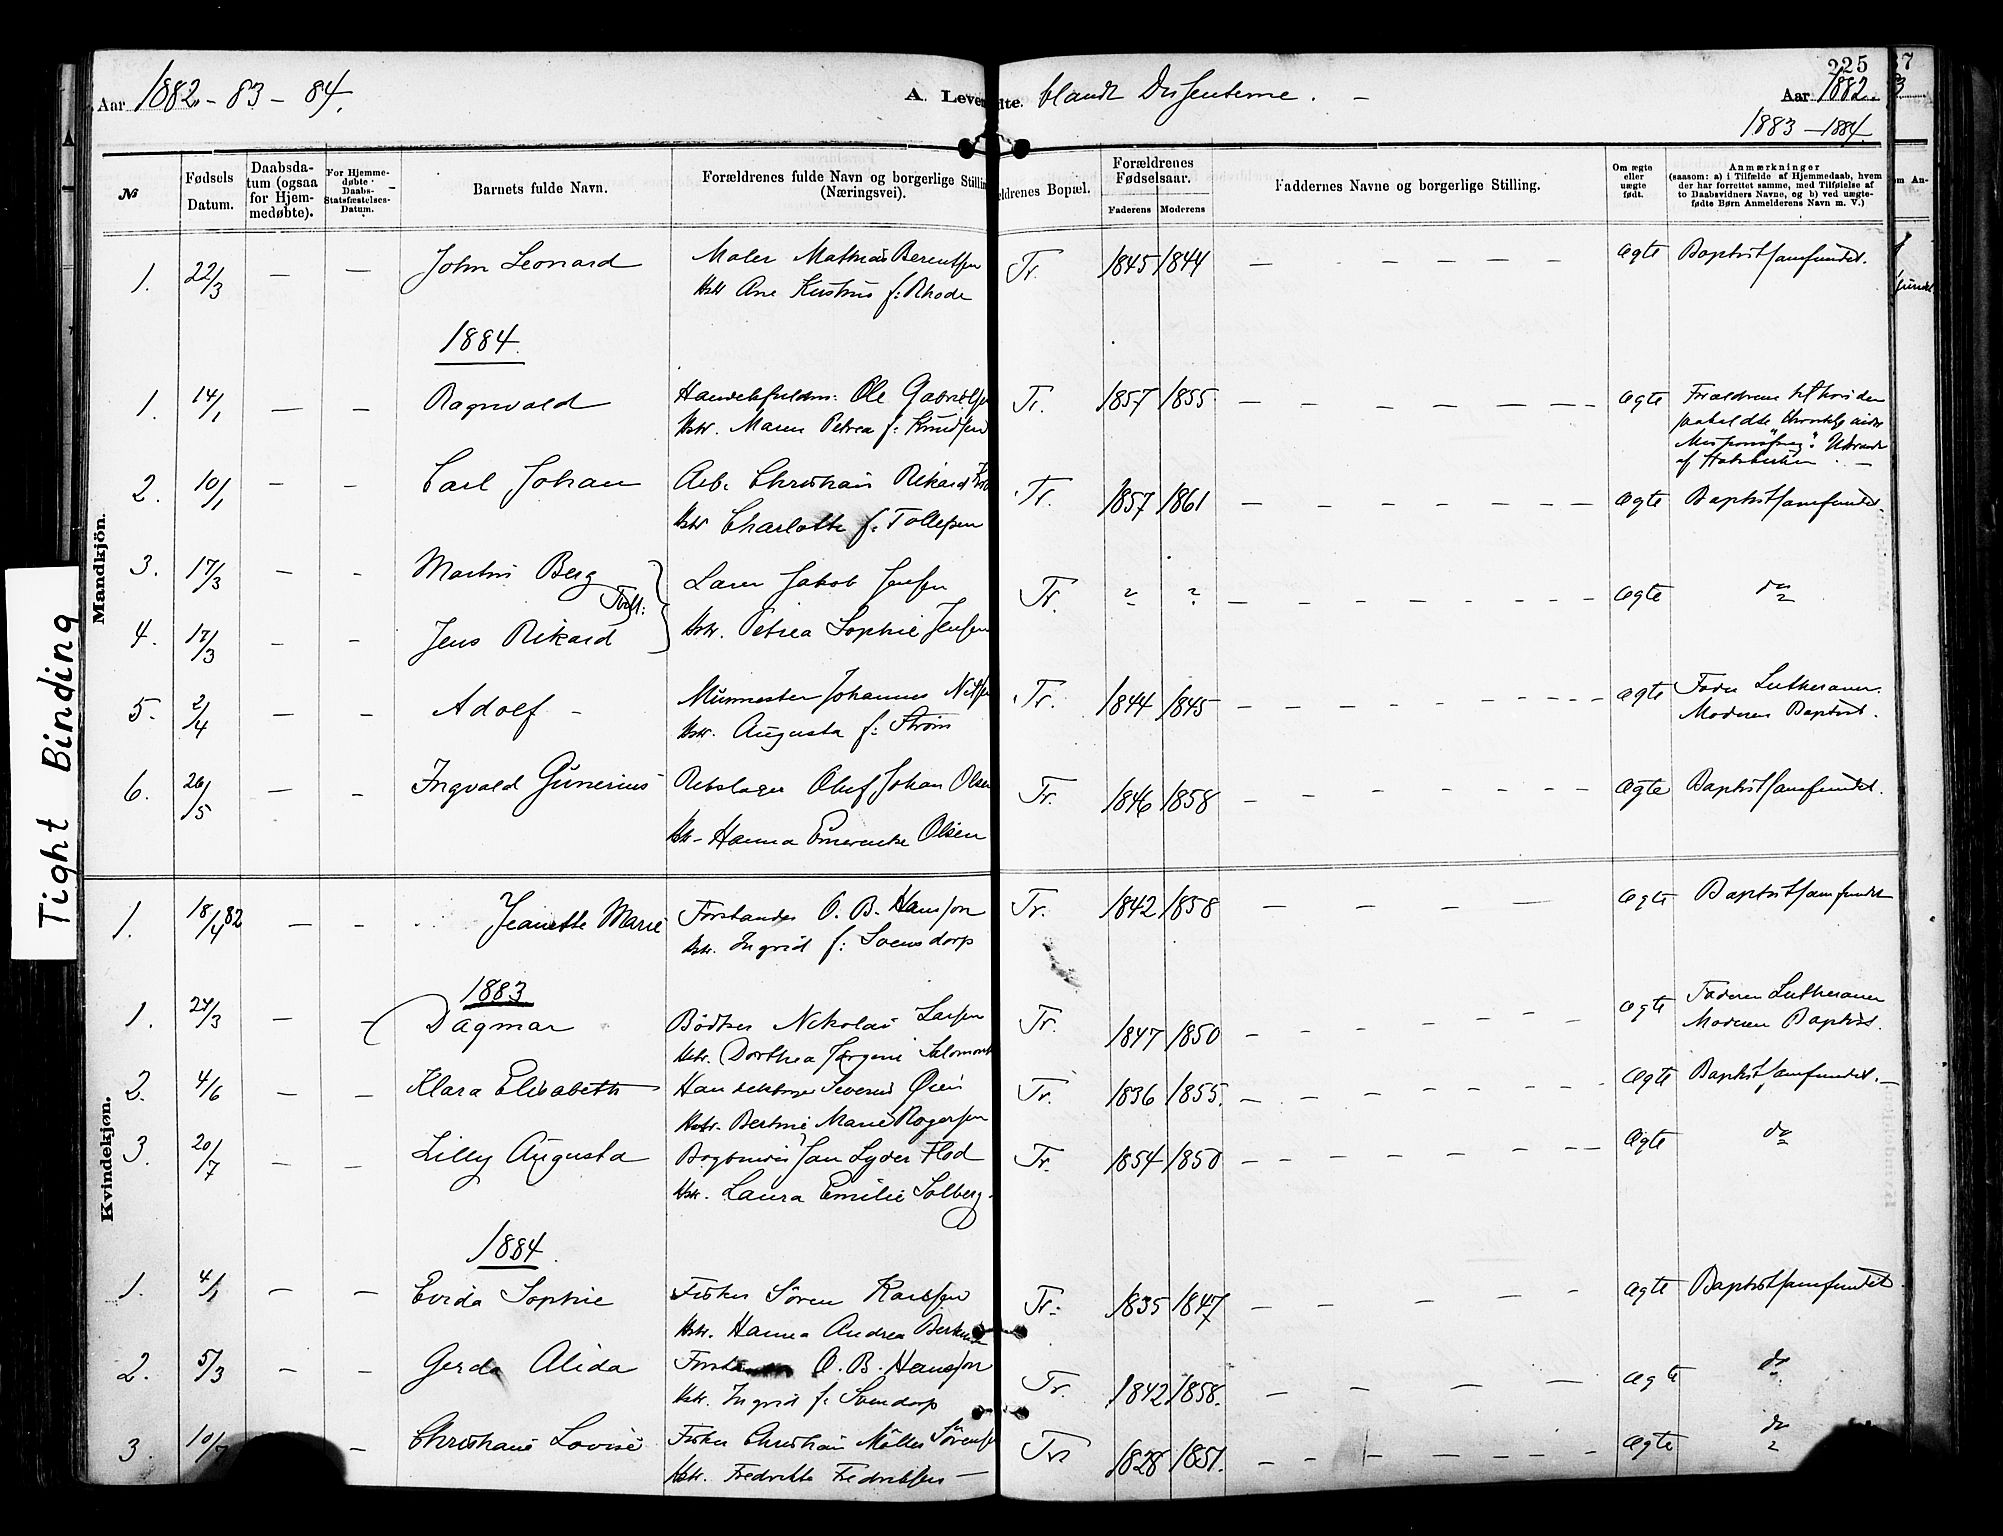 Aar 1882 - 83 - 84.
A. Levendte. blandt Dissenterne. -
225
Aar 1882.
1883 - 1884.
№
Fødsels Datum.
Daabsdatum (ogsaa for Hjemmedøbte).
For Hjemmedøbte Daabs-Statsfæstelses-Datum.
Barnets fulde Navn.
Forældrenes fulde Navn og borgerlige Stilling (Næringsvei).
ldrenes Bopæl.
Forældrenes Fødselsaar.
Faderens Moderens
Faddernes Navne og borgerlige Stilling.
Om ægte eller uægte født.
Anmærkninger
(saasom: a) i Tilfælde af Hjemmedaab, hvem
der har forrettet samme, med Tilføielse af
to Daabsvidners Navne, og b) ved uægte-
fødte Børn Anmelderens Navn m. V.)
Mandkjön.
1. 22/3 - - John Leonard Maler Mathias Berentsen Tr. 1845 1844 - - - ægte Baptistsamfundet.
Hstr Ane f: Rhode
1884.
1. 14/1 - - Ragnvald Ole Gabrielsen Tr. 1857 1855 - - - ægte Forældrene
Hstr. Maren Petrea f: Knudsen
2. 10/1 - - Carl Johan Arb. Christian Rikard Tr. 1857 1861 - - - ægte Baptistsamfundet.
Hstr Charlotte f: Tollefsen
3. 17/3 - - Martin Berg Lars Jakob Jensen Tr. ? ? - - - ægte do
Tvill:
4. 17/3 - - Jens Rikard Hstr. Petrea Sophie Jensen
5. 2/4 - - Adolf - Murmester Johannes Nilsen Tr. 1844 1845 - - - ægte Fader Lutheraner.
Hstr. Augusta f: Strøm Moderen Baptist.
6. 26/5 - - Ingvald Gunerius Rebslager Oluf Johan Olsen Tr. 1846 1858 - - - ægte Baptistsamfundet.
Hstr - Hanna Emerentse Olsen
Kvindekjøn.
1. 18/4 82 - - Jeanette Marie Forstander O. B. Hansson Tr. 1842 1858 - - - ægte Baptistsamfundet
Hstr. Ingrid f: Svensdorp
1883
1. 27/3 - - Dagmar Bødker Nikolai Larsen Tr. 1847 1850 - - - ægte Faderen Lutheraner
Hstr. Dorthea Jørgine Moderen Baptist.
2. 4/6 - - Klara Elisabeth Severin Øien Tr. 1836 1855. - - - ægte Baptistsamfundet. -
Hstr. Bertine Marie Rogersen
3. 20/7 - - Lilly Augusta Jan Lyder Flod Tr. 1854 1850 - - - ægte do
Hstr. Laura Emilie Solberg.
1884.
1. 4/1 - - Evida Sophie Fisker Søren Karlsen Tr: 1835 1847 - - - ægte Baptistsamfundet.
Hstr. Hanna Andrea
2. 5/3 - - Gerda Alida O. B. Hansson Tr. 1842 1858. - - - ægte do
Hstr. Ingrid f: Svendorp
3. 10/7 - Christiane Lovise Fisker Christian Møller Sörensen Tr 1828 1851. - - - ægte do
Hstr. Fredrikke Fredriksen -
Tight Binding